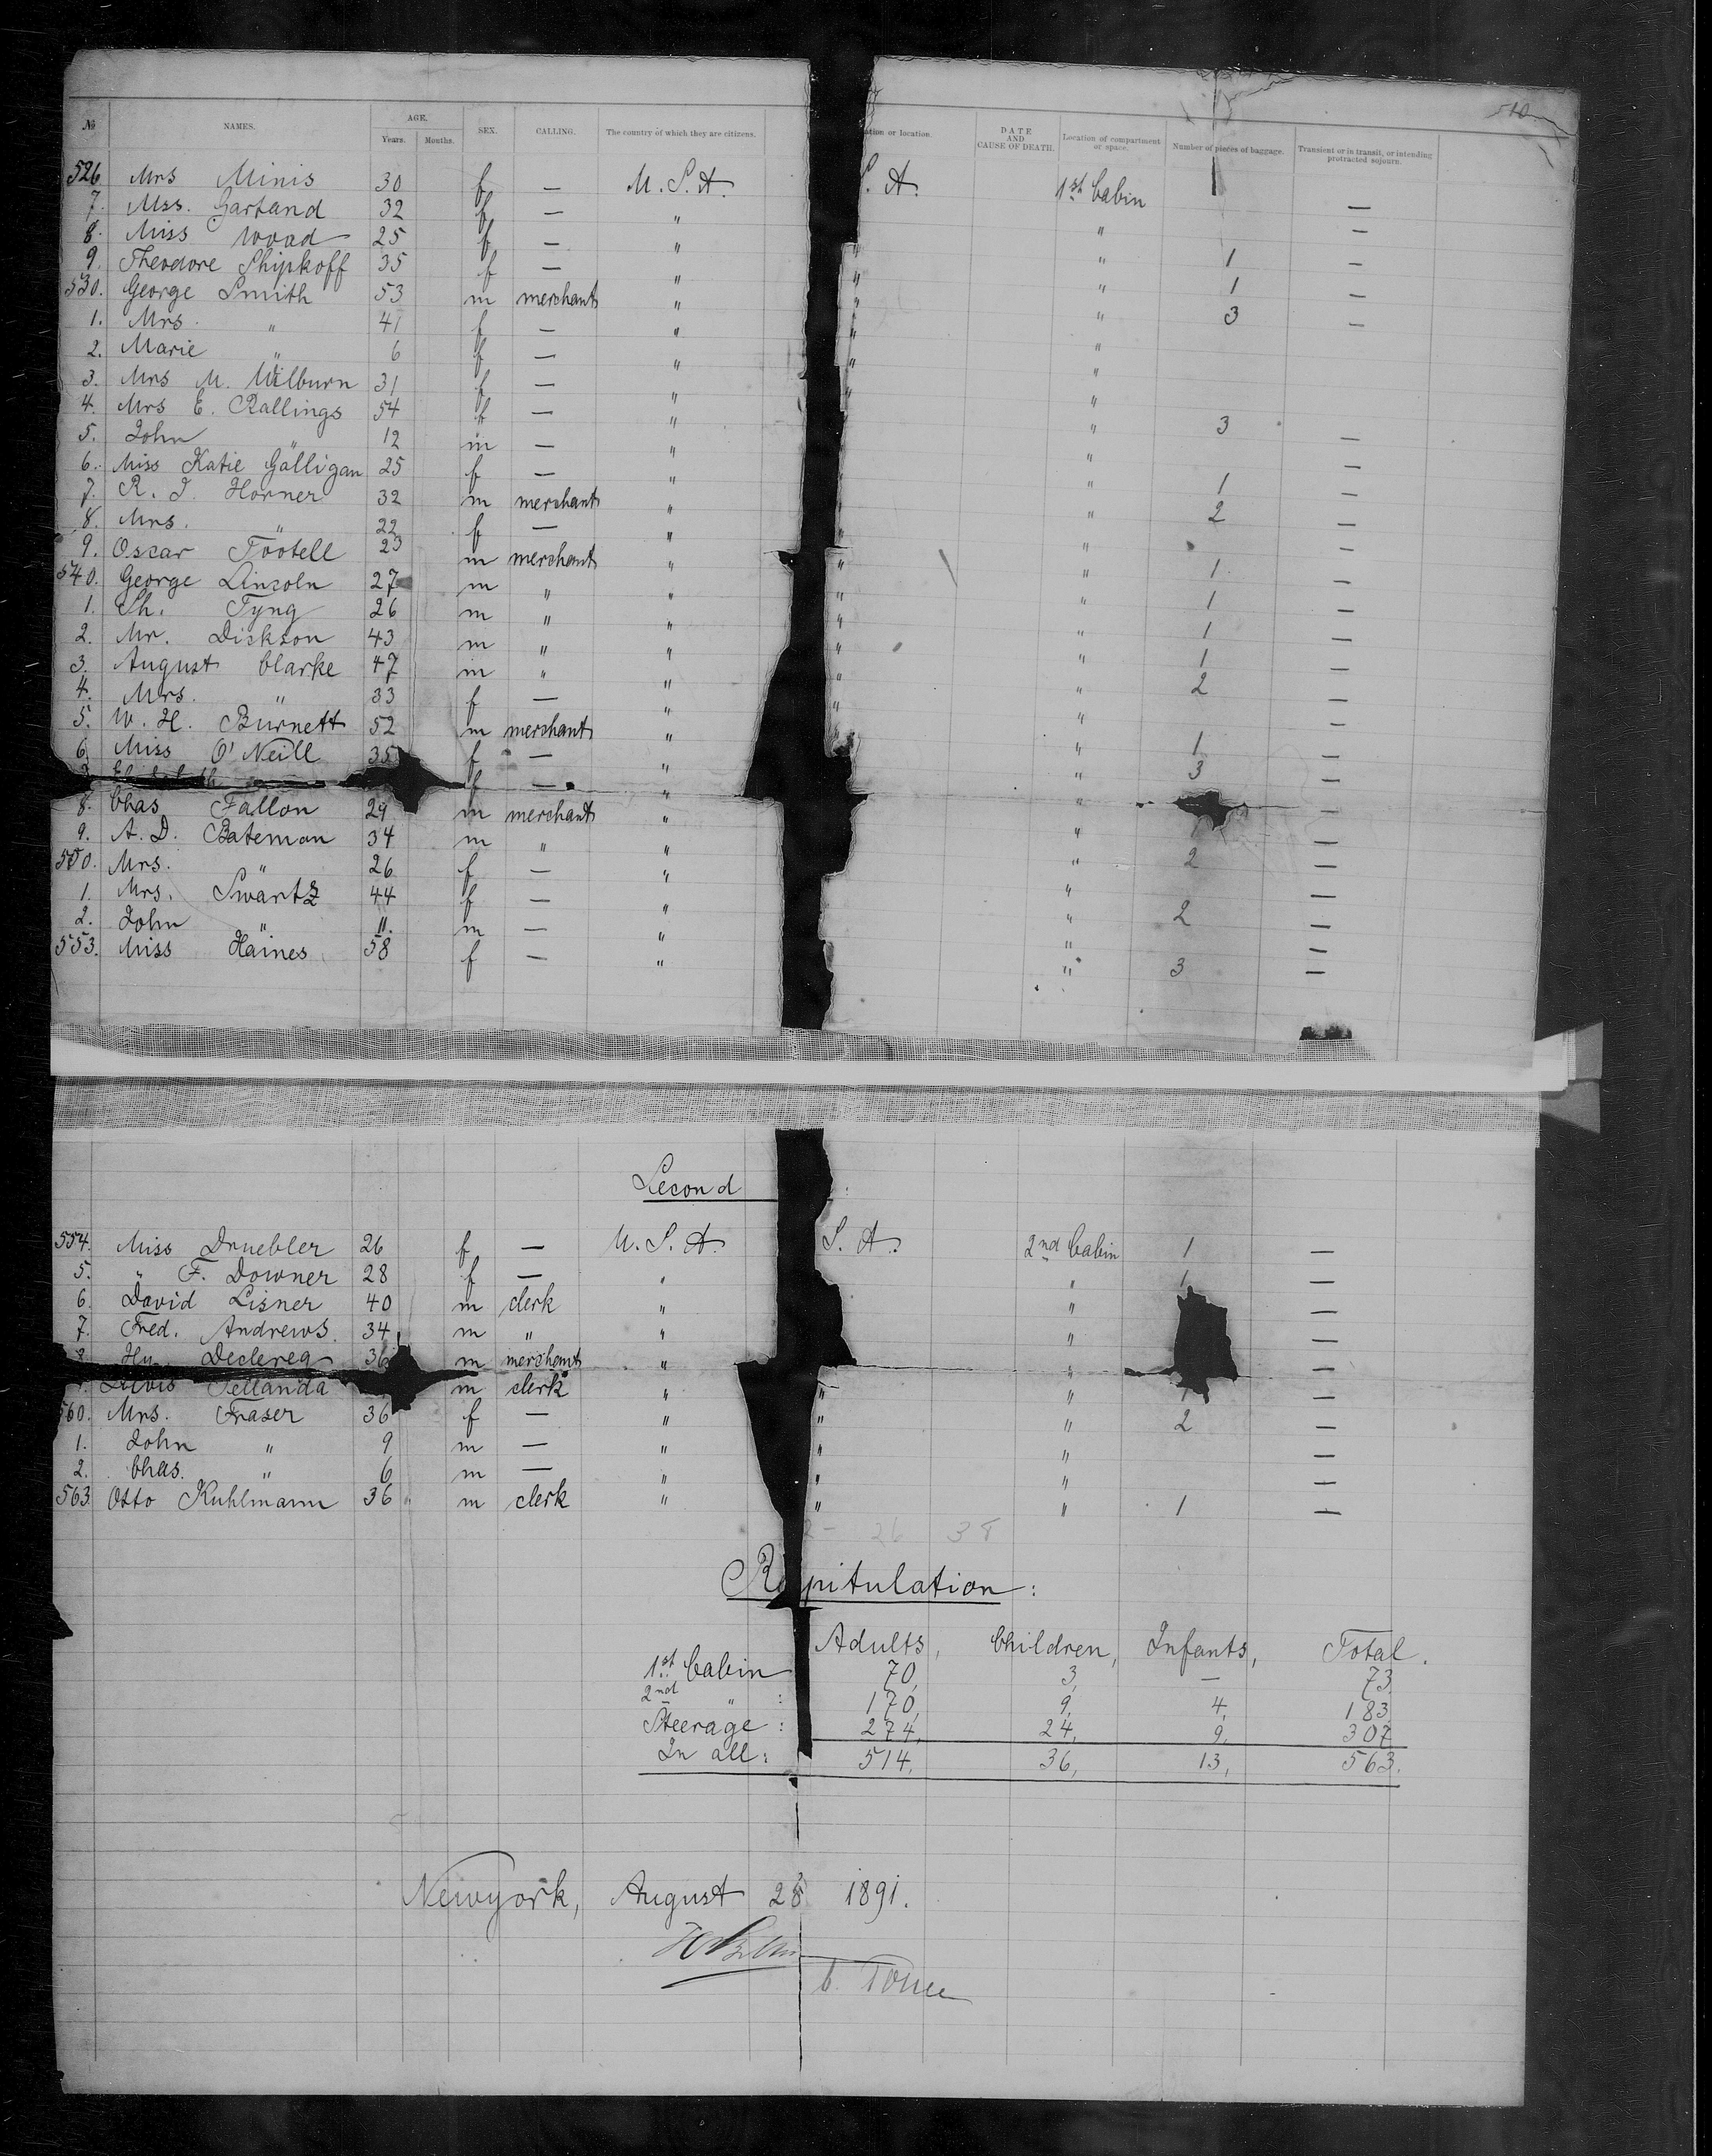 510
№ NAMES. AGE. Years. Months. SEX. CALLING. The country of which they are citizens. ation or location. DATE AND CAUSE OF DEATH. Location of compartment or space. Number of pieces of baggage. Transient or in transit, or intending protracted sojourn.
526 Mrs Minis 30 f — U. S. A. S. A. 1st Cabin —
7. Mss. Garland 32 f — " " —
8. Miss Wood 25 f — " " " 1 —
9. Theodore Shipkoff 35 f — " " " 1 —
530. George Smith 53 m merchant " " " 3 —
1. Mrs. " 41 f — " " "
2. Marie " 6 f — " " "
3. Mrs M. Wilburn 31 f — " " "
4. Mrs E. Rallings 54 f — " " " 3 —
5. John " 12 m — " " " —
6. Miss Katie Galligan 25 f — " " " 1 —
7. R. J. Horner 32 m merchant " " " 2 —
8. Mrs. " 22 f — " " " —
9. Oscar Tootell 23 m merchant " " " 1 —
540. George Lincoln 27 m " " " " 1 —
1. Th. Tyng 26 m " " " " 1 —
2. Mr. Dickson 43 m " " " " 1 —
3. August Clarke 47 m " " " " 2 —
4. Mrs. " 33 f — " " " —
5. W. H. Burnett 52 m merchant " " 1 —
6. Miss O'Neill 35 f — " " 3 —
f — " " —
8. Chas Fallon 29 m merchant " " —
9. A. D. Bateman 34 m " " " 2 —
550. Mrs. " 26 f — " " —
1. Mrs. Swartz 44 f — " " 2 —
2. John " 11. m — " " —
553. Miss Haines 58 f — " " 3 —
Second
554. Miss Druebler 26 f — U. S. A. S. A. 2nd Cabin 1 —
5. " F. Downer 28 f — " " 1 —
6. David Lisner 40 m clerk " " —
7. Fred. Andrews 34 m " " " —
8. Hy. Declereq 36 m merchant " " —
m clerk " " " 1 —
560. Mrs. Fraser 36 f — " " " 2 —
1. John " 9 m — " " " —
2. Chas. " 6 m — " " " —
563. Otto Kuhlmann 36 m clerk " " " 1 —
26 38
Re pitulation:
Adults, Children, Infants, Total.
1st Cabin 70, 3, — 73.
2nd " : 170, 9, 4, 183
Steerage : 274, 24, 9, 307
In all: 514, 36, 13, 563.
Newyork, August 28 1891.